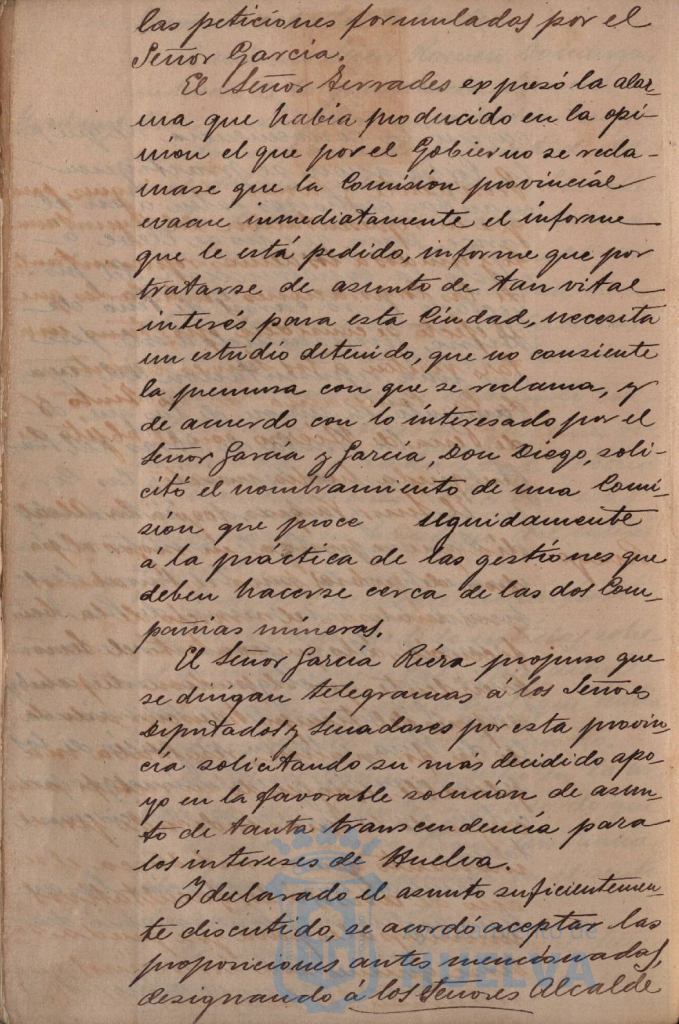 las peticiones formuladas por el
Señor García.
El Señor Serrades expresó la alar-
ma que había producido en la opi-
nion el que por el Gobierno se recla-
mase que la Comisión provincial
evacue inmediatamente el informe
que le está pedido, informe que por
tratarse de asunto de tan vital
interés para esta Ciudad, necesita
un estudio detenido, que no consiente
la premura con que se reclama, y
de acuerdo con lo interesado por el
Señor García y García, Don Diego, soli-
citó el nombramiento de una Comi-
sión que proce seguidamente
á la práctica de las gestiones que
deben hacerse cerca de las dos Com-
pañias mineras.
El Señor García Riéra propuso que
se dirigan telegramas á los Señores
Diputados y Senadores por esta provin-
cia solicitando su más decidido apo-
yo en la favorable solución de asun-
to de tanta transcendencia para
los intereses de Huelva.
I declarado el asunto suficientemen-
te discutido, se acordó aceptar las
proposiciones antes mencionadas,
designando á los Señores Alcalde
HUELVA